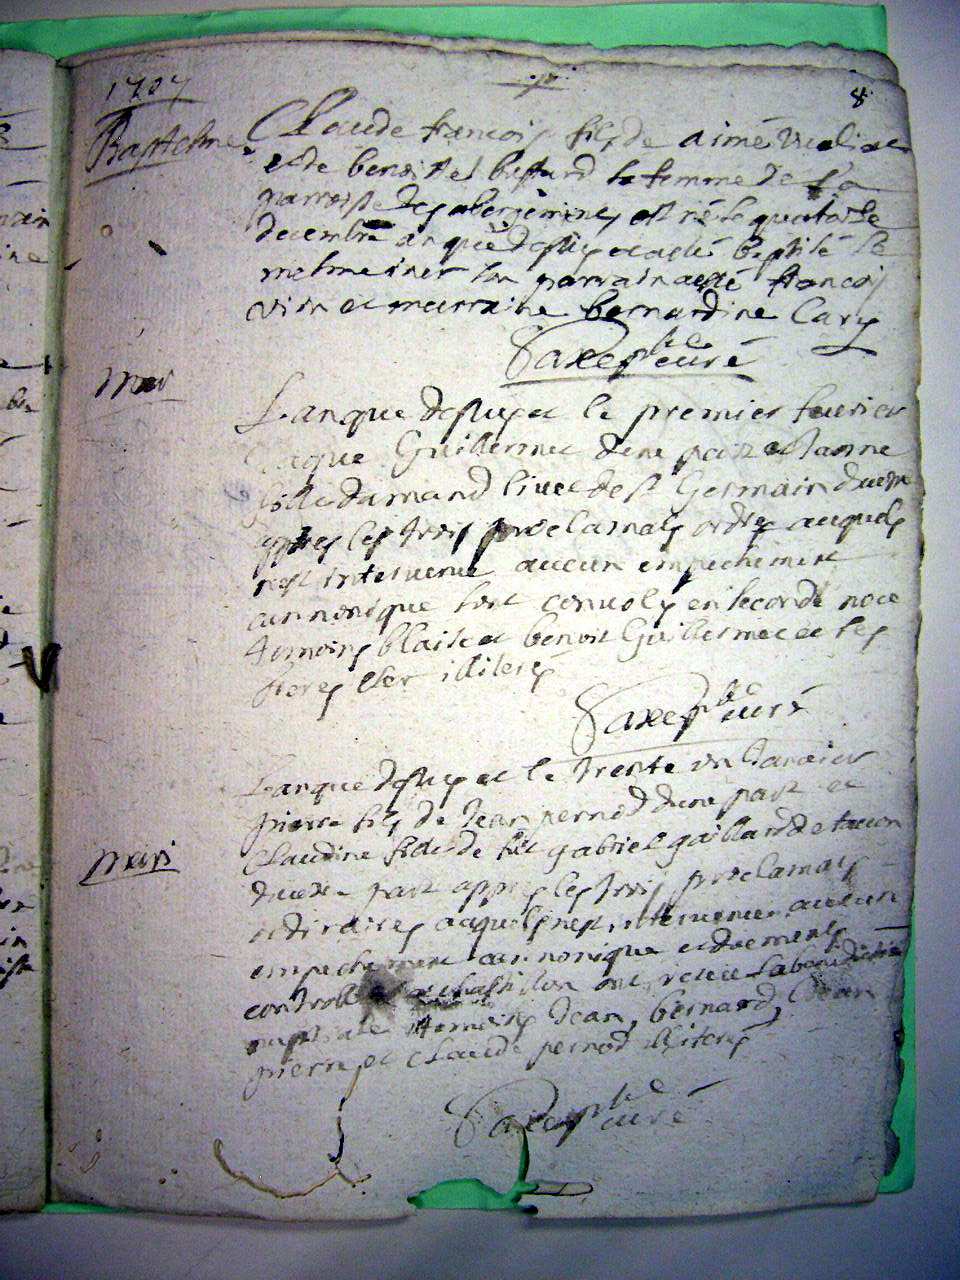 1707
8
Baptesme
Claude francois fils de aimé
et de benoiste bussard sa femme de la
parroisse des abergemens est né le quatorse
decembre an que dessus et a esté baptisé le
mesme iour son parrain a esté francois
vion et marraine bernardine Cary
Saxe pbre curé
Mar
L'an que dessus et le premier feurier
iaque Guillermet dune part et Janne
fille damand liuet de st Germain dautre
appres les trois proclamats ordres auquels
nest interuenue aucun empechement
cannonique sont conuolés en seconde noce
temoins blaise et benoit Guillermet et ses
freres illiterés
Saxe pbre curé
L'an que dessus et le trente un Janvier
pierre fils de Jean pernod dune part et
Mari
Claudine fille de fût gabriel gaillard de
dautre part appres les trois proclamats
ordinaires auquels nest interuenue aucun
empechement cannonique et duement
controllé a chastillon ont receu la benediction
nuptiale temoins Jean, bernard, Jean
pierre et claude pernod illiterés
Saxe pbre curé